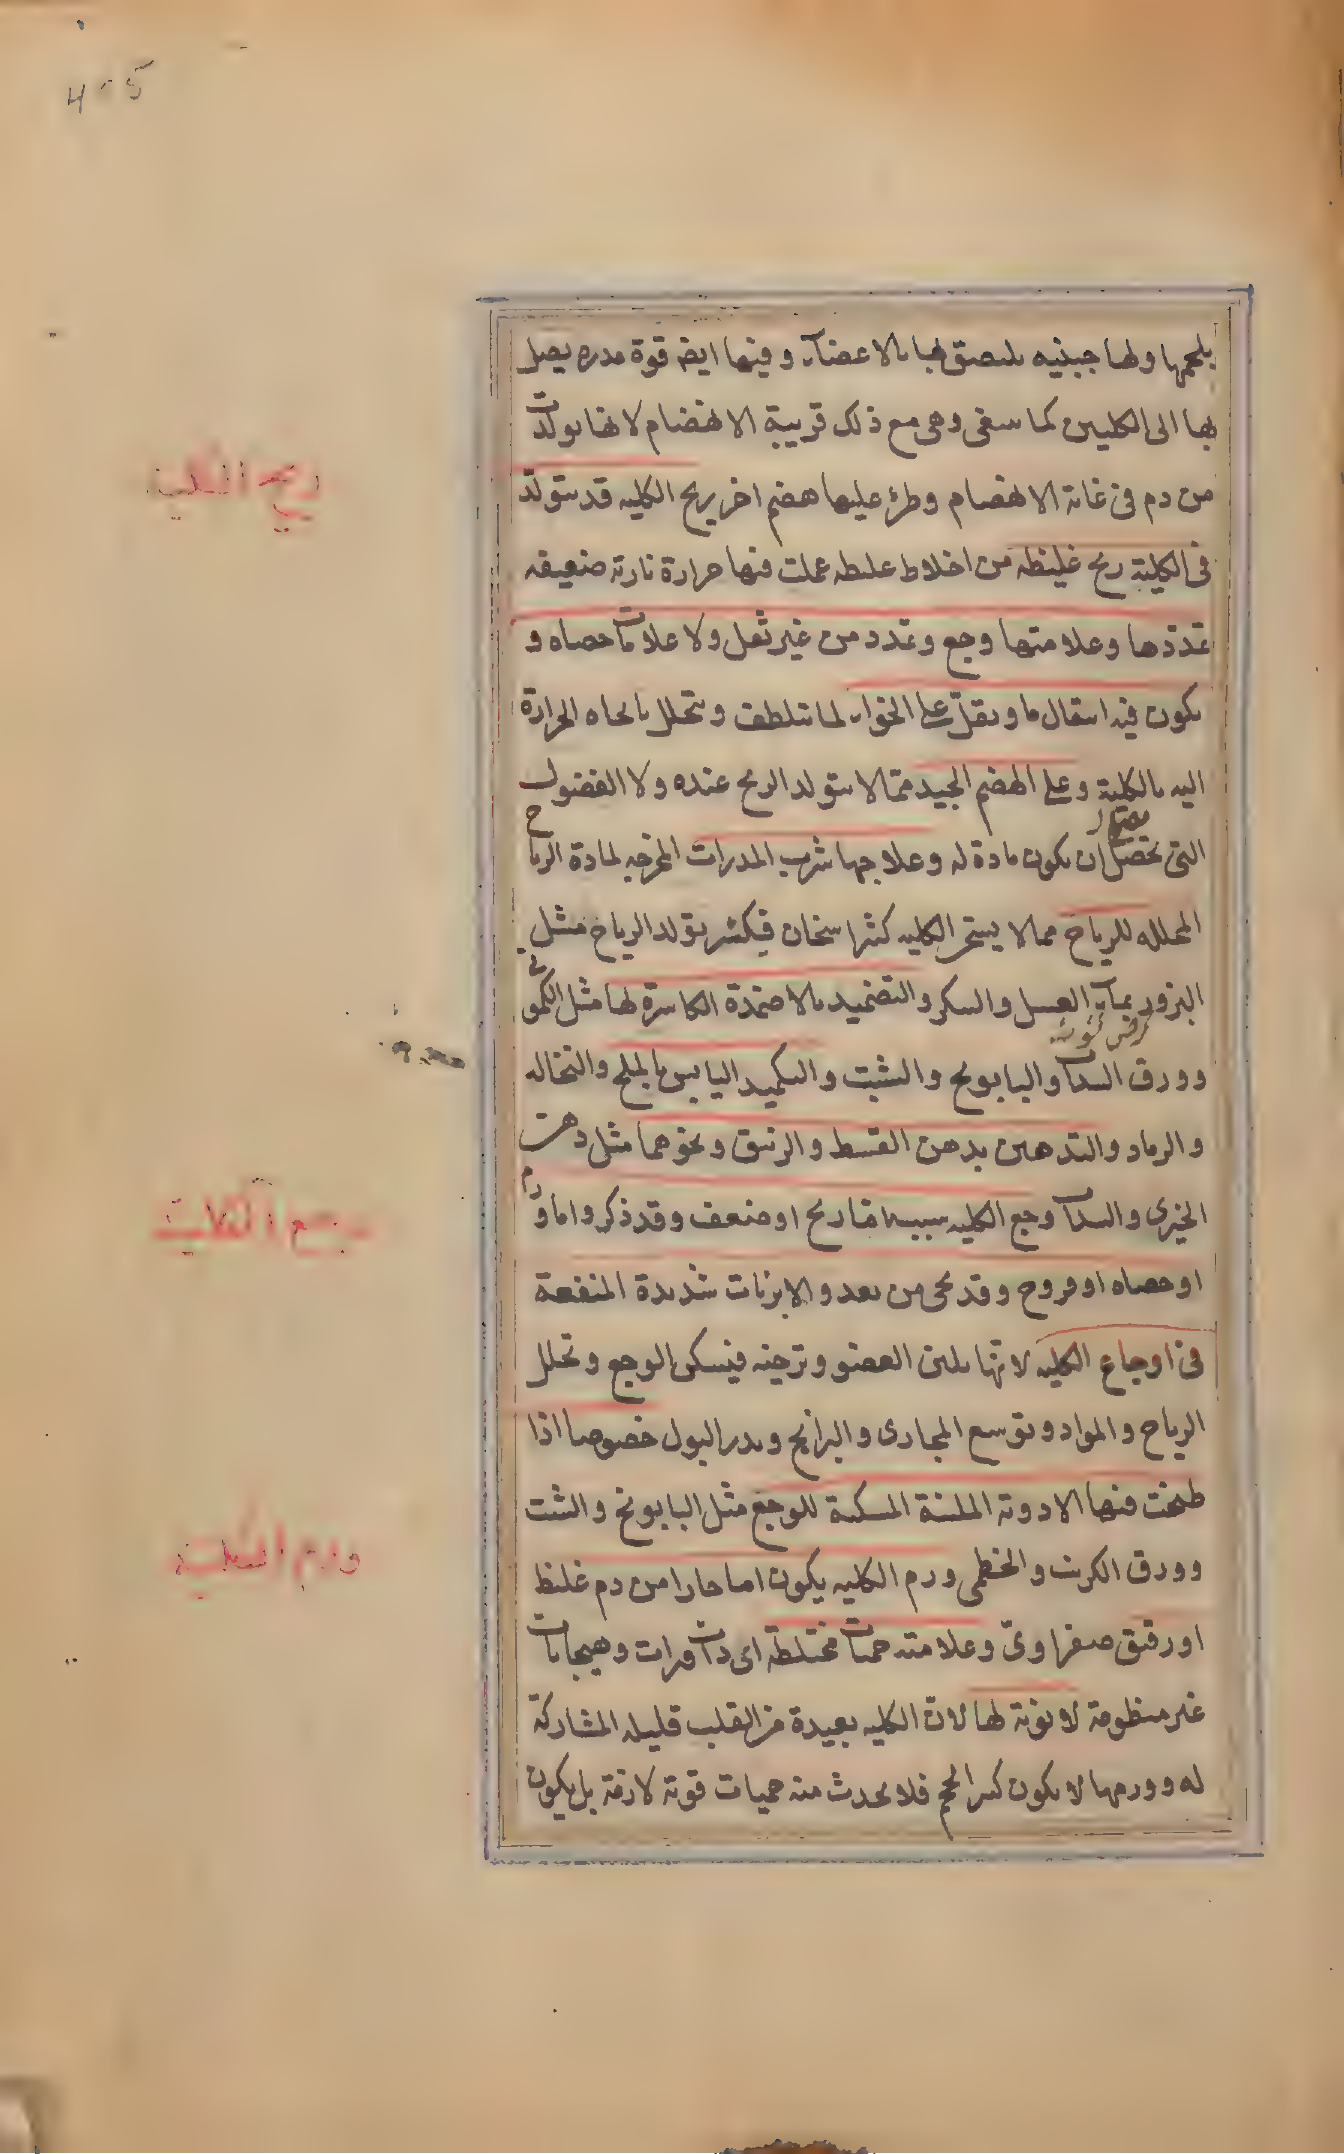 بلحمها ولها جبنيه يلتصق بها بالاعضاء وفيها ايض قوة مدره يصل
بها الى الكليتين كما ينبغى وهى مع ذلك قريبة الانهضام لانها تولدت
من دم فى غاية الانهضام وطرء عليها هضم اخر ريح الكليه قد يتولد
فى الكلية ريح غليظه من اخلاط غليظه عملت فيها حرارة نارية ضعيفه
تمددها وعلامتها وجع وتمدد من غير ثقل ولا علامات حصاه و
يكون فيه انتقال ما ويقل على الخواء لما يتلطف ويتحلل باتجاه الحرارة
اليه بالكلية وعلى الهضم الجيد مما لا يتولد الريح عنده ولا الفضول
التى تصلح ان يكون مادة له وعلاجها شرب المدرات المخرجه لمادة الرياح
المحلله للرياح مما لا يسخن الكليه كثيرا سخان فيكثر تولد الرياح مثل
البزور بماء العسل والسكر والتضميد بالاضمدة الكاسرة لها مثل الكمون
وورق السداب والبابونج والشبت والتكميد اليابس بالملح والنخاله
والرماد والتدهين بدهن القسط والزنبق ونحوهما مثل دهن
الخيرى والسداب وجع الكليه سببه اما ريح او ضعف وقد ذكر واما ورم
او حصاه او قروح وقد يجى من بعد والابزنات شديدة المنفعة
فى اوجاع الكليه لانها يلين العضو وترخيه فيسكن الوجع وتحلل
الرياح والمواد وتوسع المجارى والبرابخ ويدر البول خصوصا اذا
طبخت فيها الادوية الملينة المسكنة للوجع مثل البابونج والشبت
وورق الكرنب والخطمى ورم الكليه يكون اما حارا من دم غليظ
او رقيق صفراوى وعلامته حميات مختلطة اى ذات فترات وهيجانات
غير منظومة لا نوبة لها لان الكليه بعيدة من القلب قليله المشاركة
له وورمها لا يكون كبير الحجم فلا يحدث منه حميات قوية لازمة بل يكون
ريح الكليه
وجع الكليه
ورم الكليه